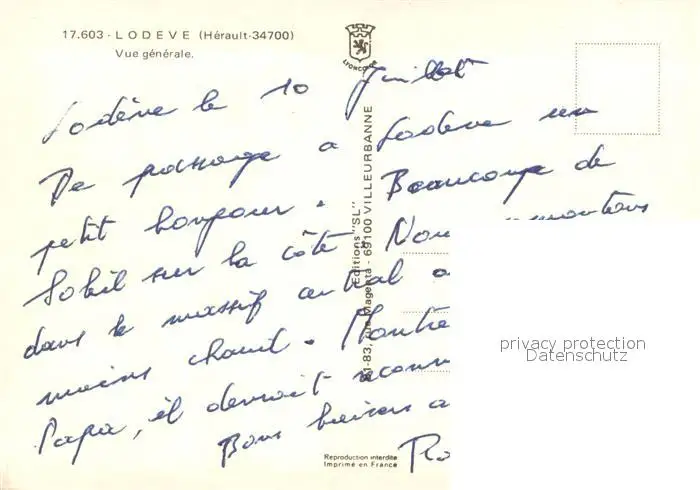 17.603 - LODEVE (Hérault-34700)
Vue générale.
LYONCOLOR
Lodève le 10 Juillet
De passage a Lodeve un
petit bonjour. Beaucoup de
Soleil sur la côte. Nous remontons
dans le massif central a
moins chaud. Montre
Papa, il devrait reconn
Bons baisers a
Ro
Editions "SL"
81-83, rue Magenta - 69100 VILLEURBANNE
Reproduction interdite
Imprimé en France
privacy protection
Datenschutz